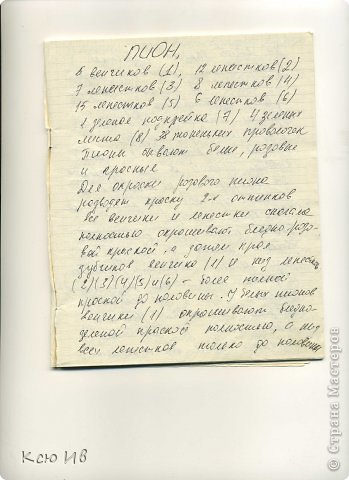 ПИОН,
6 венчиков (1), 12 лепестков (2)
7 лепестков (3) 8 лепестков (4)
15 лепестков (5) 6 лепестков (6)
1 зеленое подпушка (7) 4 зеленых
листа (8) 38 тоненьких проволочек
Пионы бывают белые, розовые
и красные
Для окраски розового пиона
разводят краску 2-х оттенков
все венчики и лепестки сначала
полностью окрашивают бледно-розо-
вой краской, а затем края
зубчиков венчика (1) и низ лепестков
(2)(3)(4)(5)и(6) - более темной
краской до половины. У белых пионов
венчики (1) окрашивают бледно-
зеленой краской полностью, а низ
всех лепестков только до половины
Ксю ИВ
© Страна Мастеров